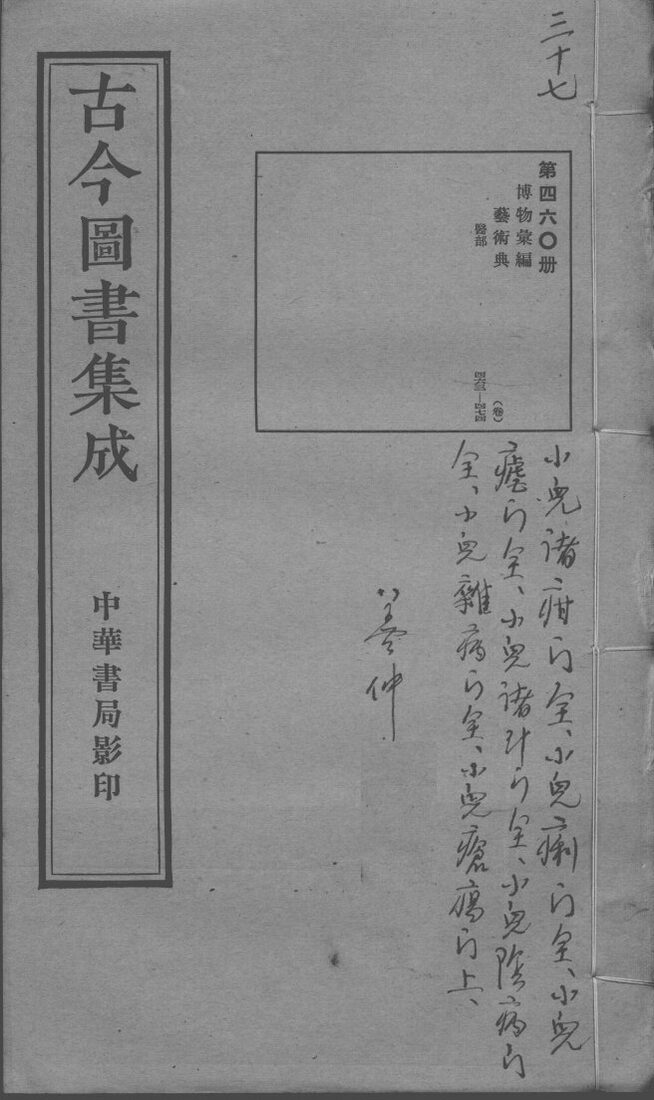 三十七
第四六〇册
博物彙編
藝術典
醫部
(卷)
四六三—四七四
小兒諸疳门全、小兒痢门全、小兒
瘧门全、小兒諸汗门全、小兒陰病门
全、小兒雜病门全、小兒瘡瘍门上、
仲
古今圖書集成
中華書局影印